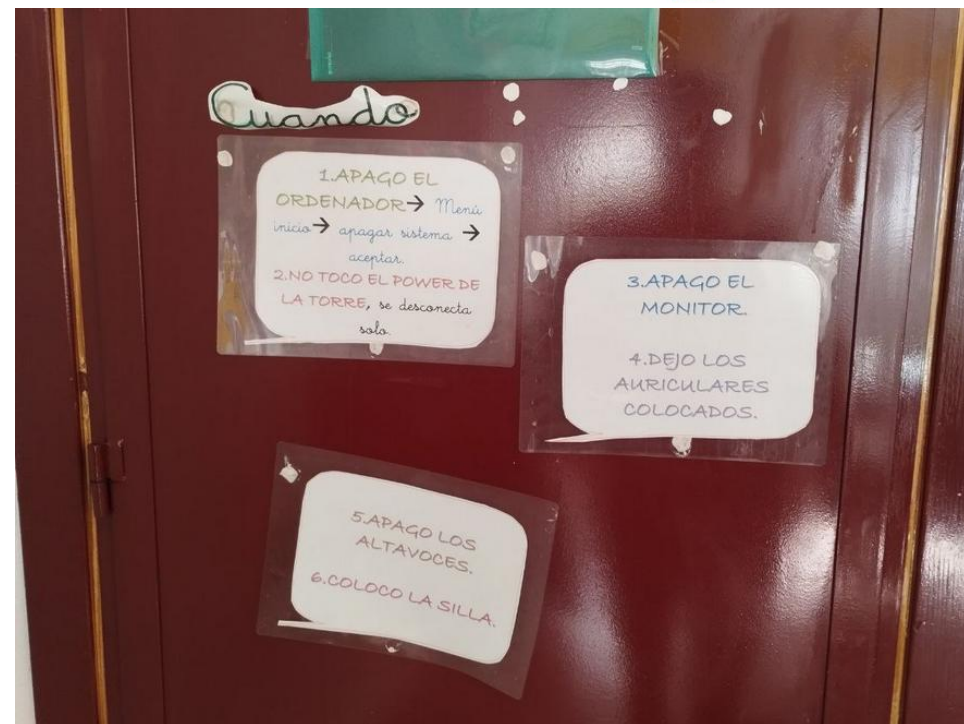 Cuando
1.APAGO EL
ORDENADOR→ Menú
inicio→ apagar sistema →
aceptar.
2.NO TOCO EL POWER DE
LA TORRE, se desconecta
solo.
3.APAGO EL
MONITOR.
4.DEJO LOS
AURICULARES
COLOCADOS.
5.APAGO LOS
ALTAVOCES.
6.COLOCO LA SILLA.